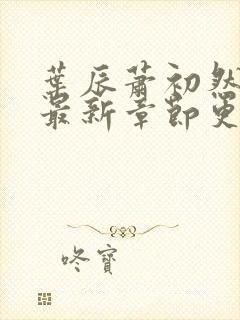 葉辰蕭初然
最新章節更
咚寶